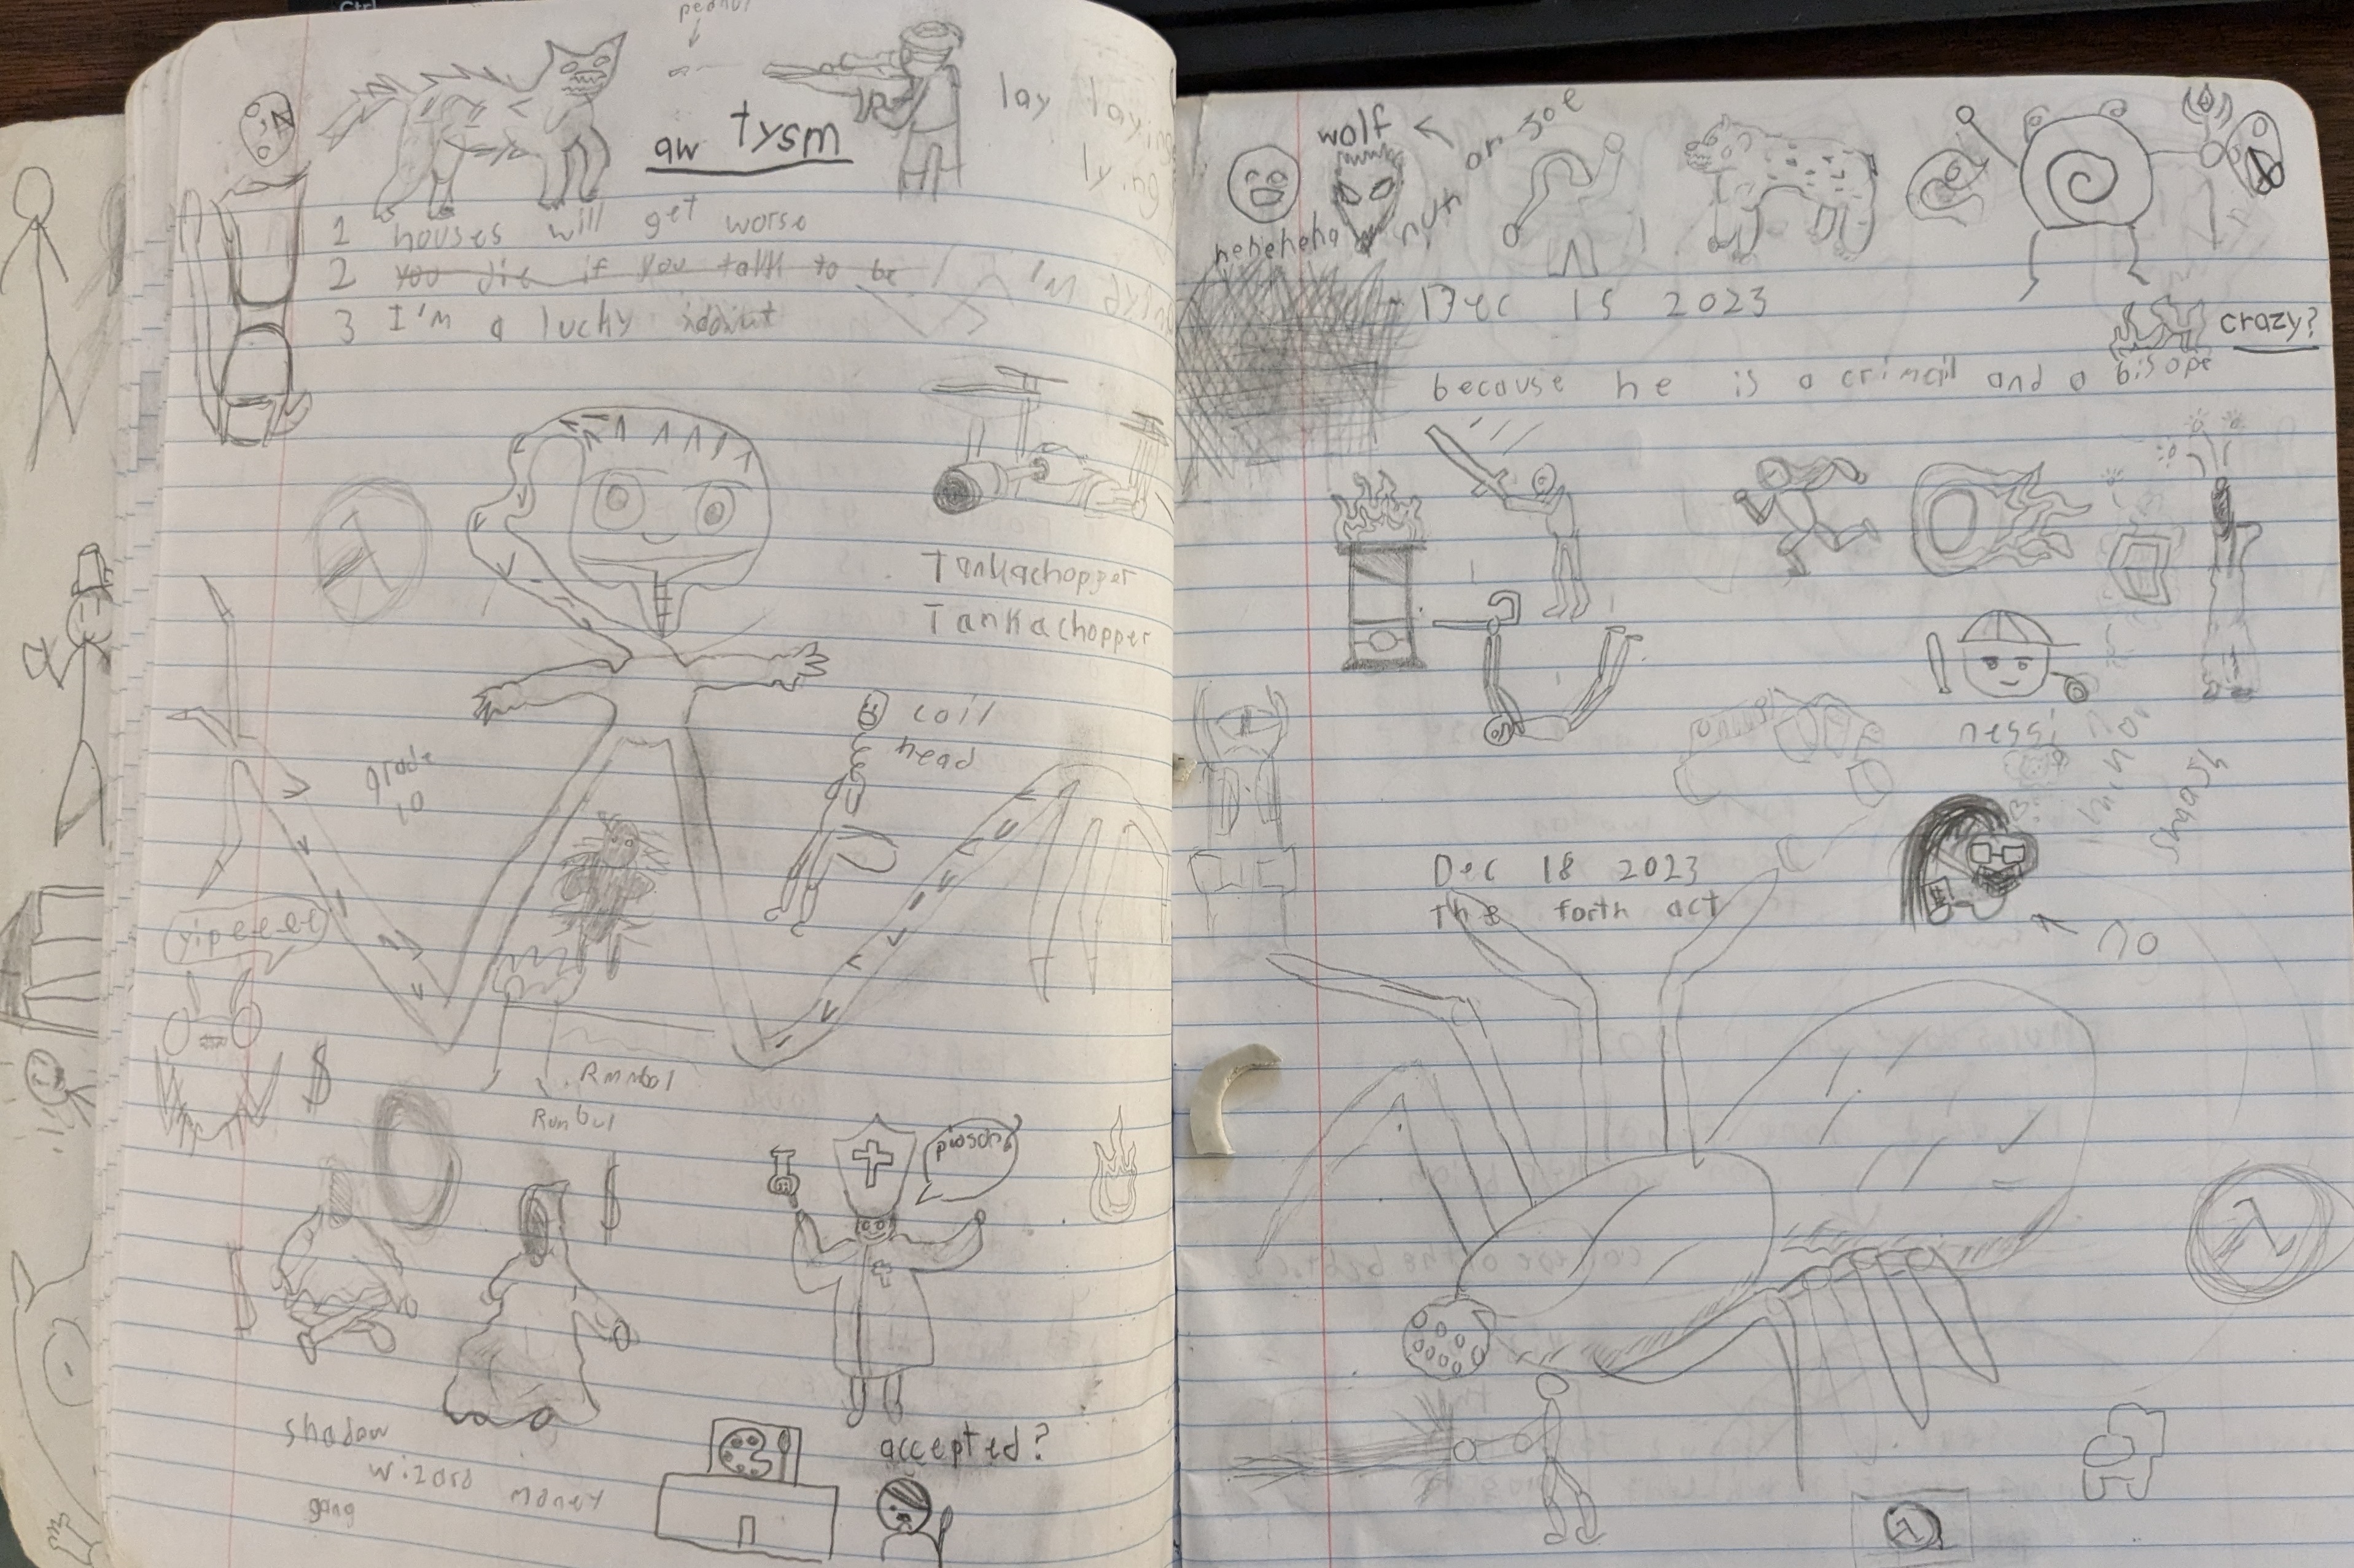 Ctrl
peanut
aw tysm
lay laying
lying
1 houses will get worse
2 You die if you talk to be
3 I'm a lucky
I'm dying
Tankachopper
Tankachopper
coil
head
grade
10
yipeeee
$
Rumbul
$
pioson
shadow
wizard money
gang
accepted?
wolf
heheheha
nuh
Dec 15 2023
crazy?
because he is a crimail and a bisope
nessi
smash
Dec 18 2023
The forth act
no
λ